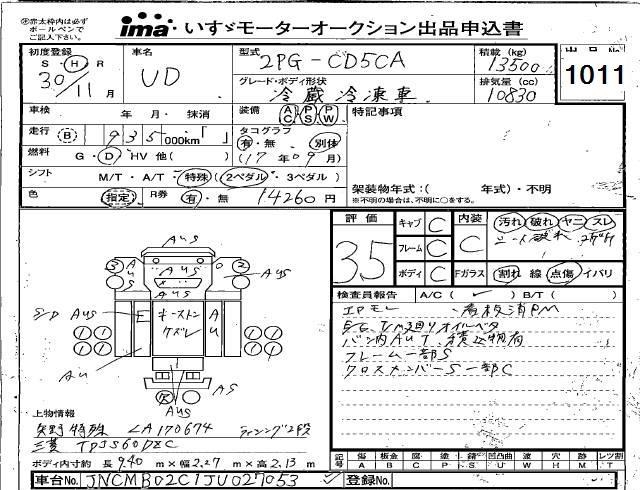 ※赤太枠内は必ず
ボールペンで
ご記入下さい。
ima いすゞモーターオークション出品申込書
初度登録 S・H・R 30/11月
車名 UD
型式 2PG-CD5CA
積載 (kg) 13500
グレード・ボディ形状 冷蔵冷凍車
排気量 (cc) 10830
1011
車検 年・月・抹消
装備 AC PS PW
特記事項
走行 B 935 000km「 」
タコグラフ 有・無 別体
燃料 G・D・HV 他( )
(17年09月)
シフト M/T・A/T・特殊 (2ペダル・3ペダル)
色 指定 R券 有・無 14260円
架装物年式:( 年式)・不明
※不明の場合は、不明に○をする。
評価 35
キャブ C
フレーム C
ボディ C
内装 C
汚れ 破れ ヤニ スレ
シート破れ
Fガラス 割れ 線 点傷 イバリ
検査員報告 A/C( ✓ ) B/T( )
エアモレ 、看板消PM
E/G、T/M廻りオイルベタ
バン内AUT、積込物有
フレーム一部S
クロスメンバーS一部C
AUS
AUS
AUS
AUS
3 2
E
キーストン
ケズレ
AU
AU
AUS
AS
AUS
上物情報
矢野特殊 LA170674 ラッシング2段
三菱 TDJS60DZC
ボディ内寸約 長 9.40 m×幅 2.27 m×高 2.13 m
記号 A 傷 B 板金 C 腐 P 塗 S 錆 U 凹凸曲 W 波 H 穴 M 跡 T レツ割
車台No. JNCMB02C1JU027053
登録No.